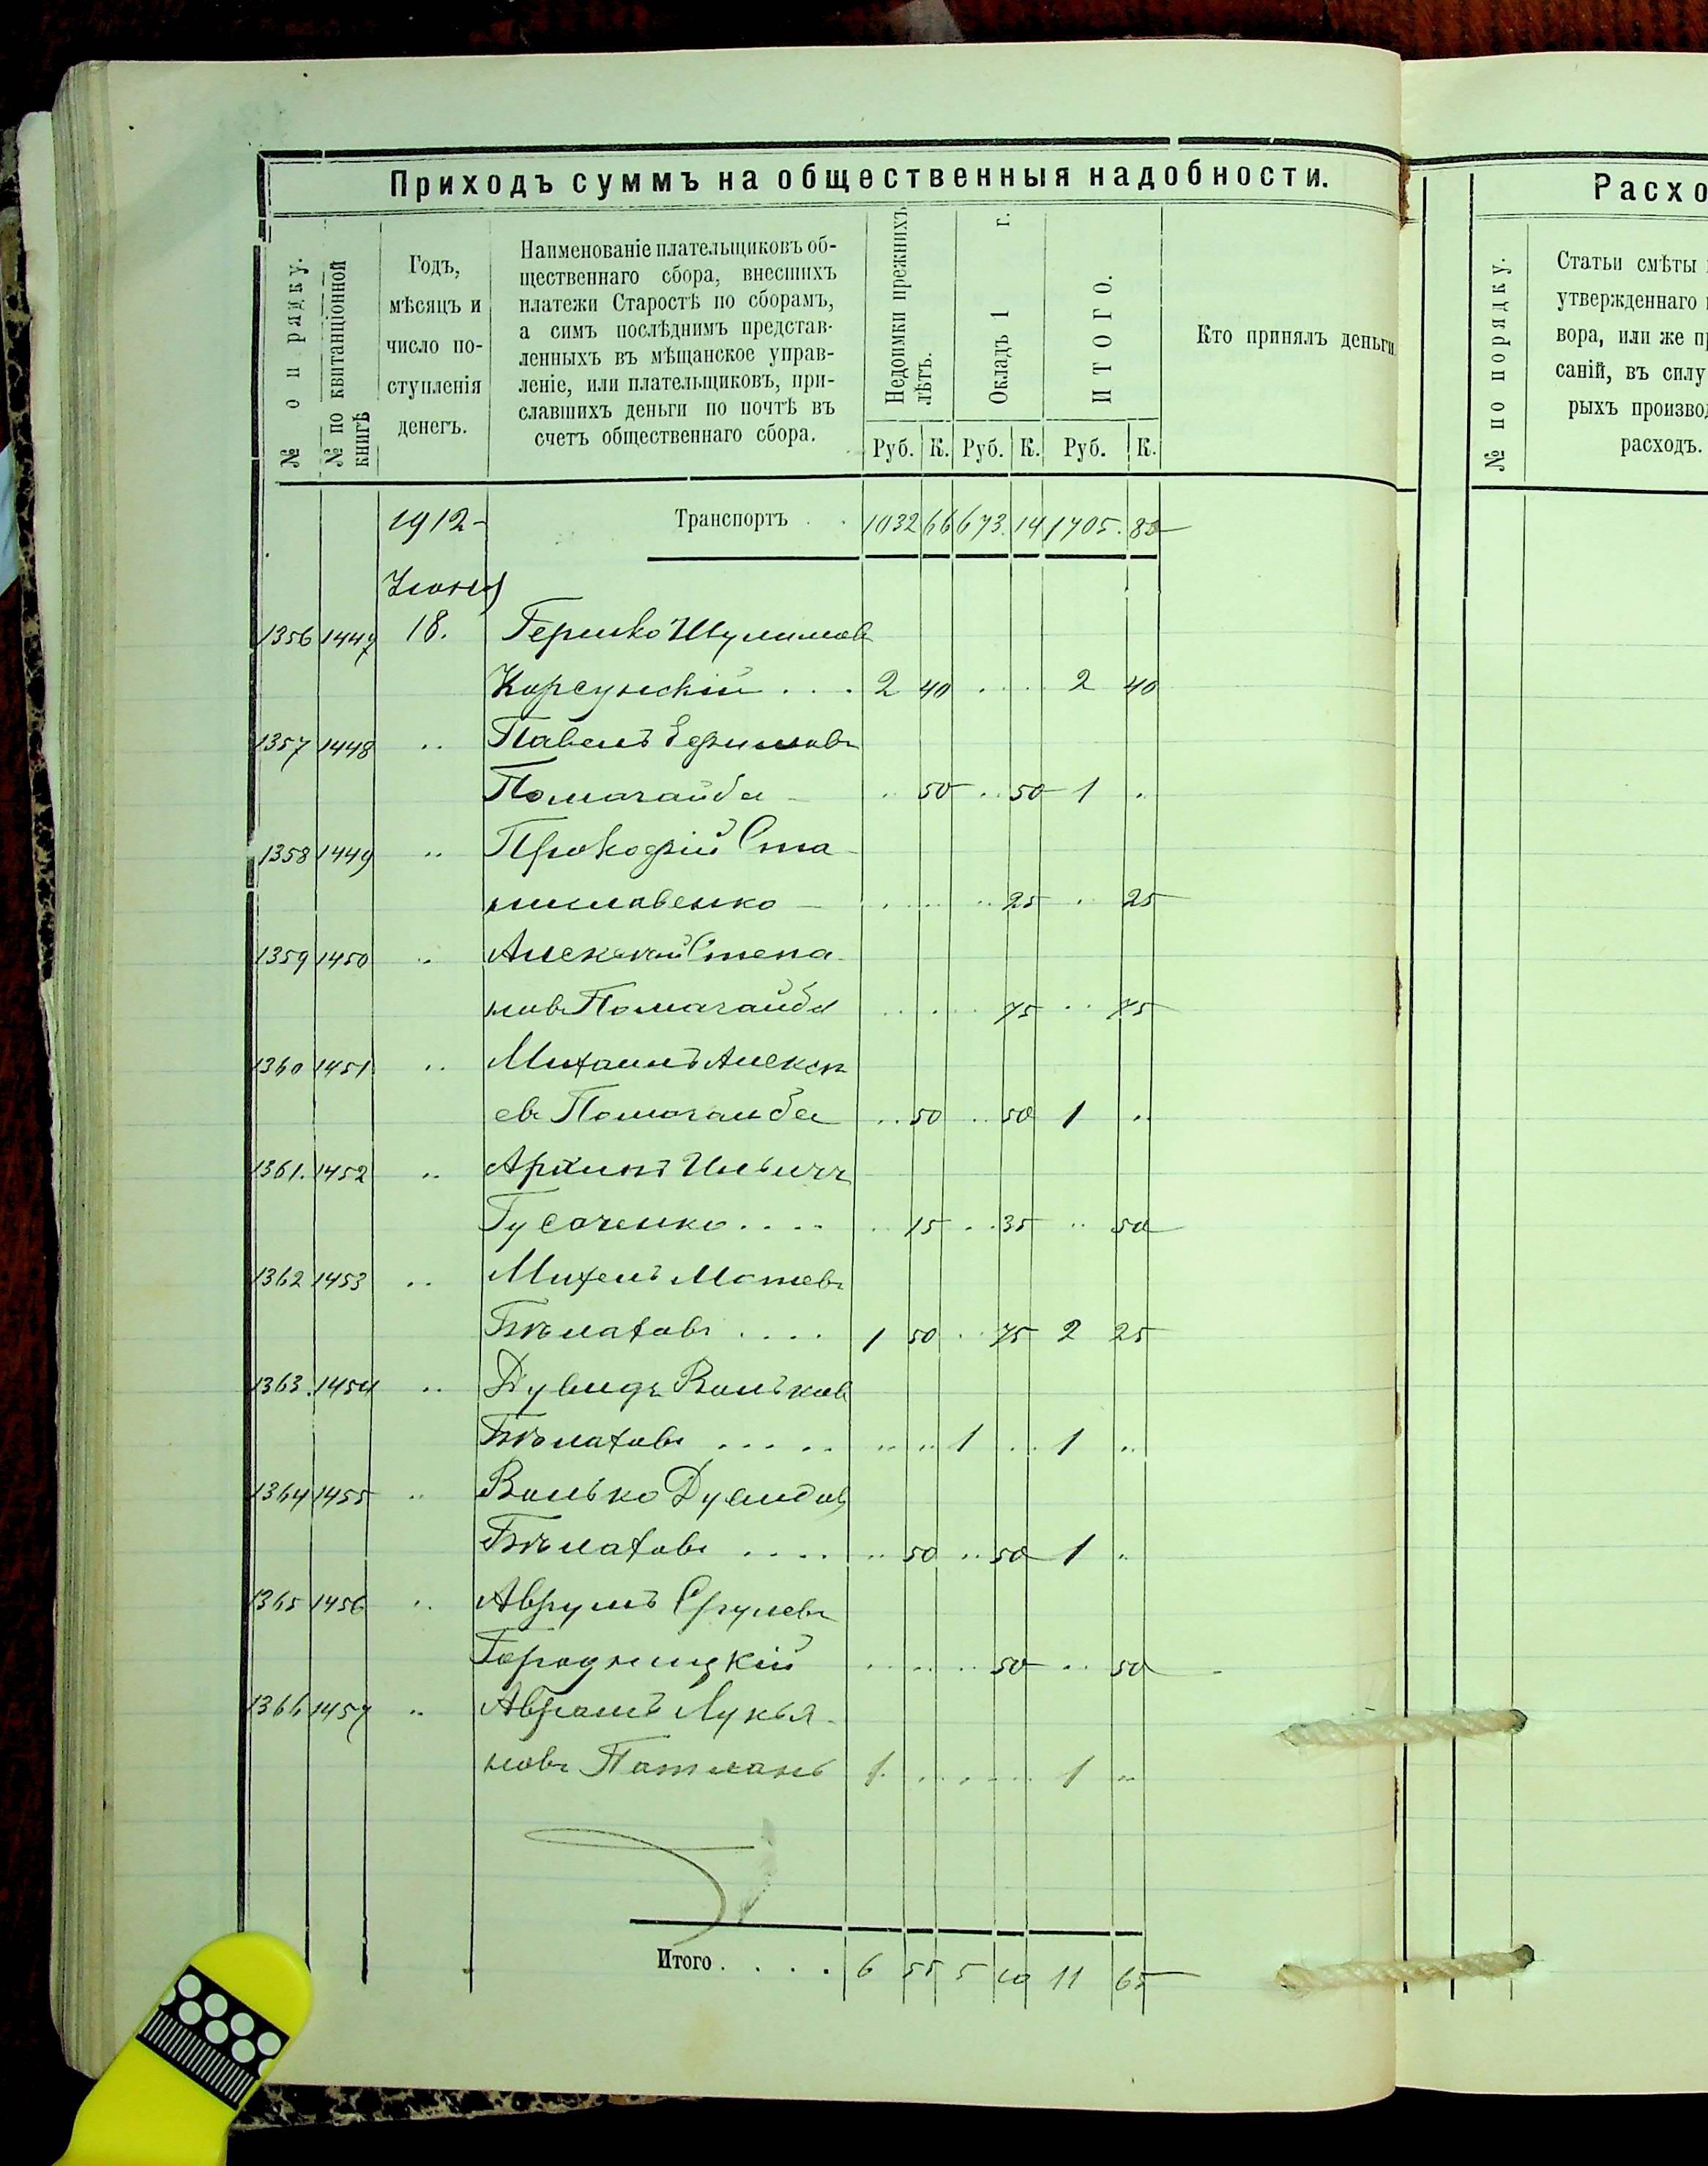 Приходъ суммъ на общественныя надобности.
№ по рядку.
№ по квитанціонной книгѣ
Годъ,
мѣсяцъ и
число по-
ступленія
денегъ.
Наименованіе плательщиковъ об-
щественнаго сбора, внесшихъ
платежи Старостѣ по сборамъ,
а симъ послѣднимъ представ-
ленныхъ въ мѣщанское управ-
леніе, или плательщиковъ, при-
славшихъ деньги по почтѣ въ
счетъ общественнаго сбора.
Недоимки прежнихъ
лѣтъ.
Окладъ 1 г.
ИТОГО.
Руб. К. Руб. К. Руб. К.
Кто принялъ деньги.
1912 - Транспортъ . . 1032 66 673. 14 1705. 80
Іюня
1356 1447 18. Гершко Шулимов
Корсунскій . . . 2 40 . . . . 2 40
1357 1448 " Павелъ Ефимовъ
Помагайба - " 50 " 50 1 "
1358 1449 " Прокофій Ста-
ниславенко - . . . . " 25 " 25
1359 1450 " Алексѣй Степа-
новъ Помагайба . . . . 75 . . 75
1360 1451 " Михаилъ Алексѣ
евъ Помагайба " 50 " 50 1 "
1361. 1452 " Архипъ Ильичъ
Гусаченко . . . . " 15 " 35 " 50
1362 1453 " Михель Мотевъ
Бѣлаховъ . . . . 1 50 " 75 2 25
1363. 1454 " Дувидъ Вольков
Бѣлаховъ . . . . . " " 1 " 1 "
1364 1455 " Волько Дувидов
Бѣлаховъ . . . . " 50 " 50 1 "
1365 1456 " Аврумъ Срулевъ
Городницкій . . . . . 50 " 50
1366 1457 " Аврамъ Лукья-
новъ Патлань 1 . . . . . . 1 "
Итого . . . . 6 55 5 10 11 65
Расхо
№ по порядку.
Статьи смѣты
утвержденнаго
вора, или же пр
саній, въ силу
рыхъ производ
расходъ.